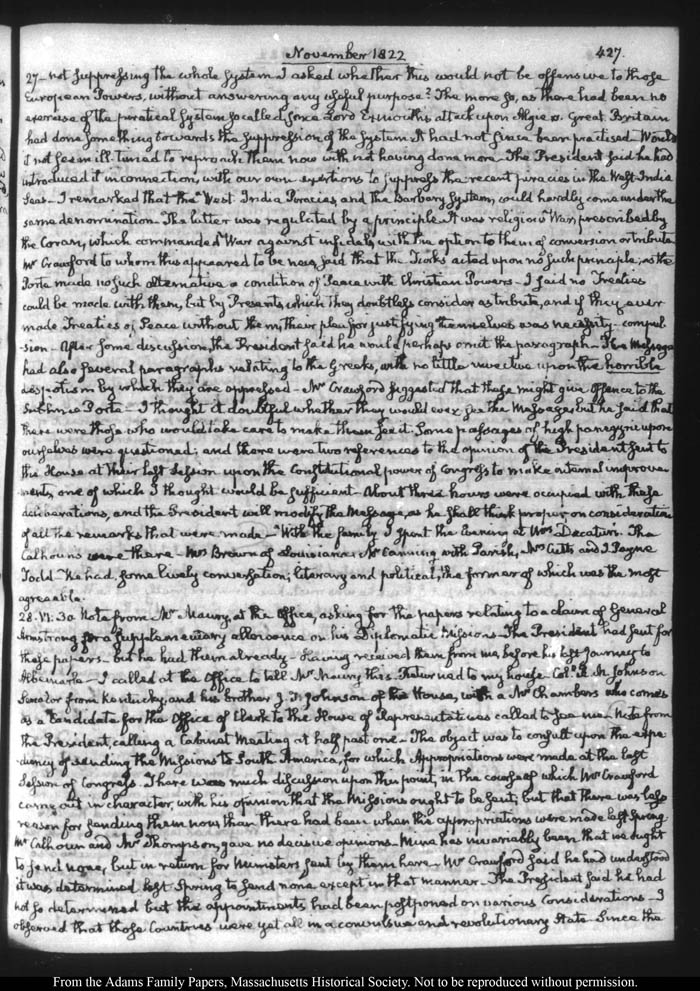 November 1822
427.
27_ not suppressing the whole System I asked whether this would not be offensive to those
European Powers, without answering any useful purpose? The more so, as there had been no
exercise of the piratical System so called, since Lord Exmouth's attack upon Algiers. Great Britain
had done something towards the suppression of the System. It had not since been practised_ Would
it not seem ill-timed to reproach them now with not having done more_ The President said he had
introduced it in connection, with our own exertions to suppress the recent piracies in the West-India
Seas_ I remarked that the West India Piracies, and the Barbary System, could hardly come under the
same denomination_ The latter was regulated by a principle. It was religious War, prescribed by
the Coran, which commanded War against infidels, with the option to them of conversion or tribute
Mr Crawford to whom this appeared to be new, said that the Turks acted upon no such principle; as the
Porte made no such alternative a condition of Peace with Christian Powers_ I said no Treaties
could be made with them, but by Presents, which they doubtless consider as tribute, and if they ever
made Treaties of Peace without them, their plea for justifying themselves was necessity_ compul-
-sion_ After some discussion, the President said he would perhaps omit the paragraph_ The Message
had also several paragraphs relating to the Greeks, with no little invective upon the horrible
despotism by which they are oppressed_ Mr Crawford suggested that these might give offence to the
Sublime Porte_ I thought it doubtful whether they would ever see the Message, but he said that
there were those who would take care to make them see it. Some passages of high panegyric upon
ourselves were questioned; and there were two references to the opinion of the President sent to
the House at their last Session upon the Constitutional power of Congress to make internal improve-
ments, one of which I thought would be sufficient_ About three hours were occupied with these
deliberations, and the President will modify the Message, as he shall think proper on consideration
of all the remarks that were made_ With the family I spent the Evening at Mrs Decatur's. The
Calhouns were there_ Mrs Brown of Louisiana, Mr Canning with Parish, Mrs Cutts and J Payne
Todd_ We had some lively conversation; literary and political, the former of which was the most
agreeable.
28. VI:30 Note from Mr Maury, at the Office, asking for the papers relating to a claim of General
Armstrong for a supplementary allowance on his Diplomatic Missions_ The President had sent for
these papers_ but he had them already_ Having received them from me, before his last journey to
Albemarle_ I called at the Office to tell Mr Maury this. Returned to my house. Coll. R. M. Johnson
Senator from Kentucky, and his brother J. T. Johnson of the House, with a Mr Chambers who comes
as a Candidate for the Office of Clerk to the House of Representatives called to see me_ Note from
the President, calling a Cabinet Meeting at half past one_ The object was to consult upon the expe-
-diency of sending the Missions to South America, for which Appropriations were made at the last
Session of Congress. There was much discussion upon this point, in the course of which Mr Crawford
came out in character, with his opinion that the Missions ought to be sent; but that there was less
reason for sending them now than there had been when the appropriations were made last Spring
Mr Calhoun and Mr Thompson, gave no decisive opinions_ Mine has invariably been that we ought
to send none, but in return for Ministers sent by them here_ Mr Crawford said he had understood
it was determined last Spring to send none except in that manner_ The President said he had
not so determined but the appointments had been postponed on various Considerations_ I
observed that those Countries were yet all in a convulsive and revolutionary State_ Since the
From the Adams Family Papers, Massachusetts Historical Society. Not to be reproduced without permission.